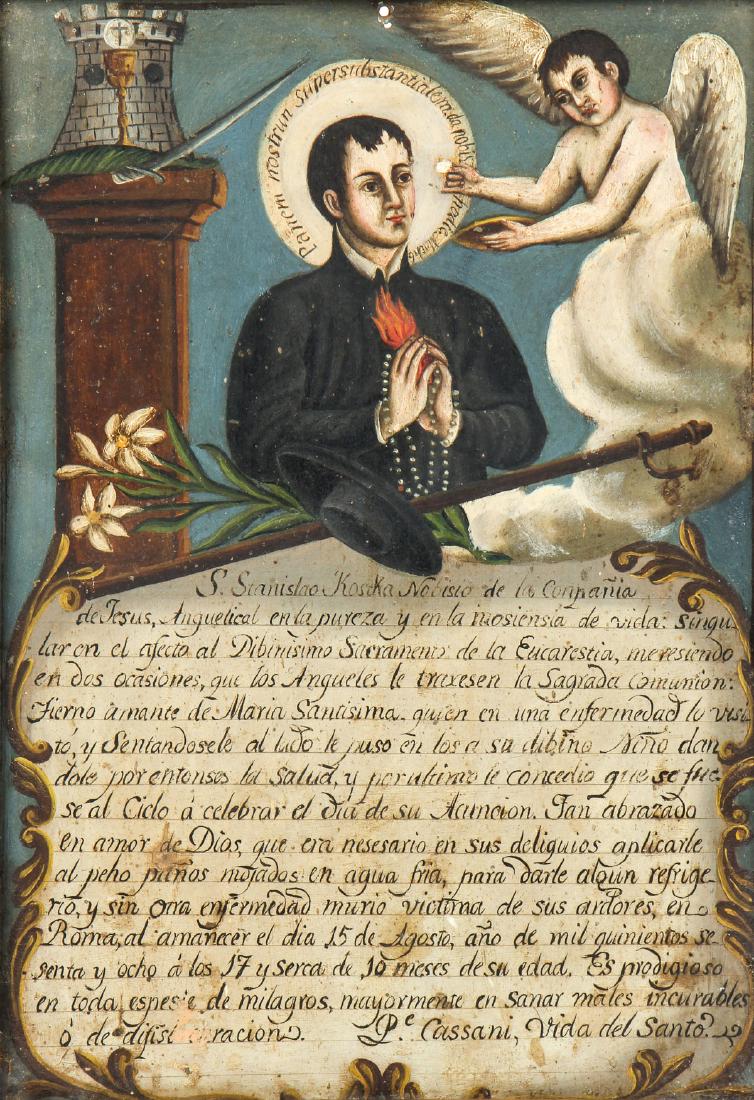 Panem nostrun supersubstantialem da nobis
S. Stanislao Kostka Nobisio de la Conpañia
de Jesus, Anguelical en la pureza y en la inosiensia de vida: Singu
lar en el afecto al Dibinisimo Sacramento de la Eucarestia, meresiendo
en dos ocasiones, que los Angueles le traxesen la Sagrada Comunion:
Tierno amante de Maria Santisima quien en una enfermedad lo visi
tó, y Sentandosele al lado le puso en los a su dibino Niño dan
dole por entonses la salud, y por ultimo le concedio que se fue
se al Cielo á celebrar el dia de su Acuncion. Tan abrazado
en amor de Dios, que era nesesario en sus deliquios aplicarle
al peho paños mojados en agua fria, para darle algun refrige
rio, y sin otra enfermedad murio victima de sus ardores, en
Roma, al amanecer el dia 15 de Agosto, año de mil quinientos se
senta y ocho á los 17 y serca de 10 meses de su edad. Es prodigioso
en toda espesie de milagros, mayormente en sanar males incurables
ó de difisi uracion. P.e Cassani, Vida del Santo.